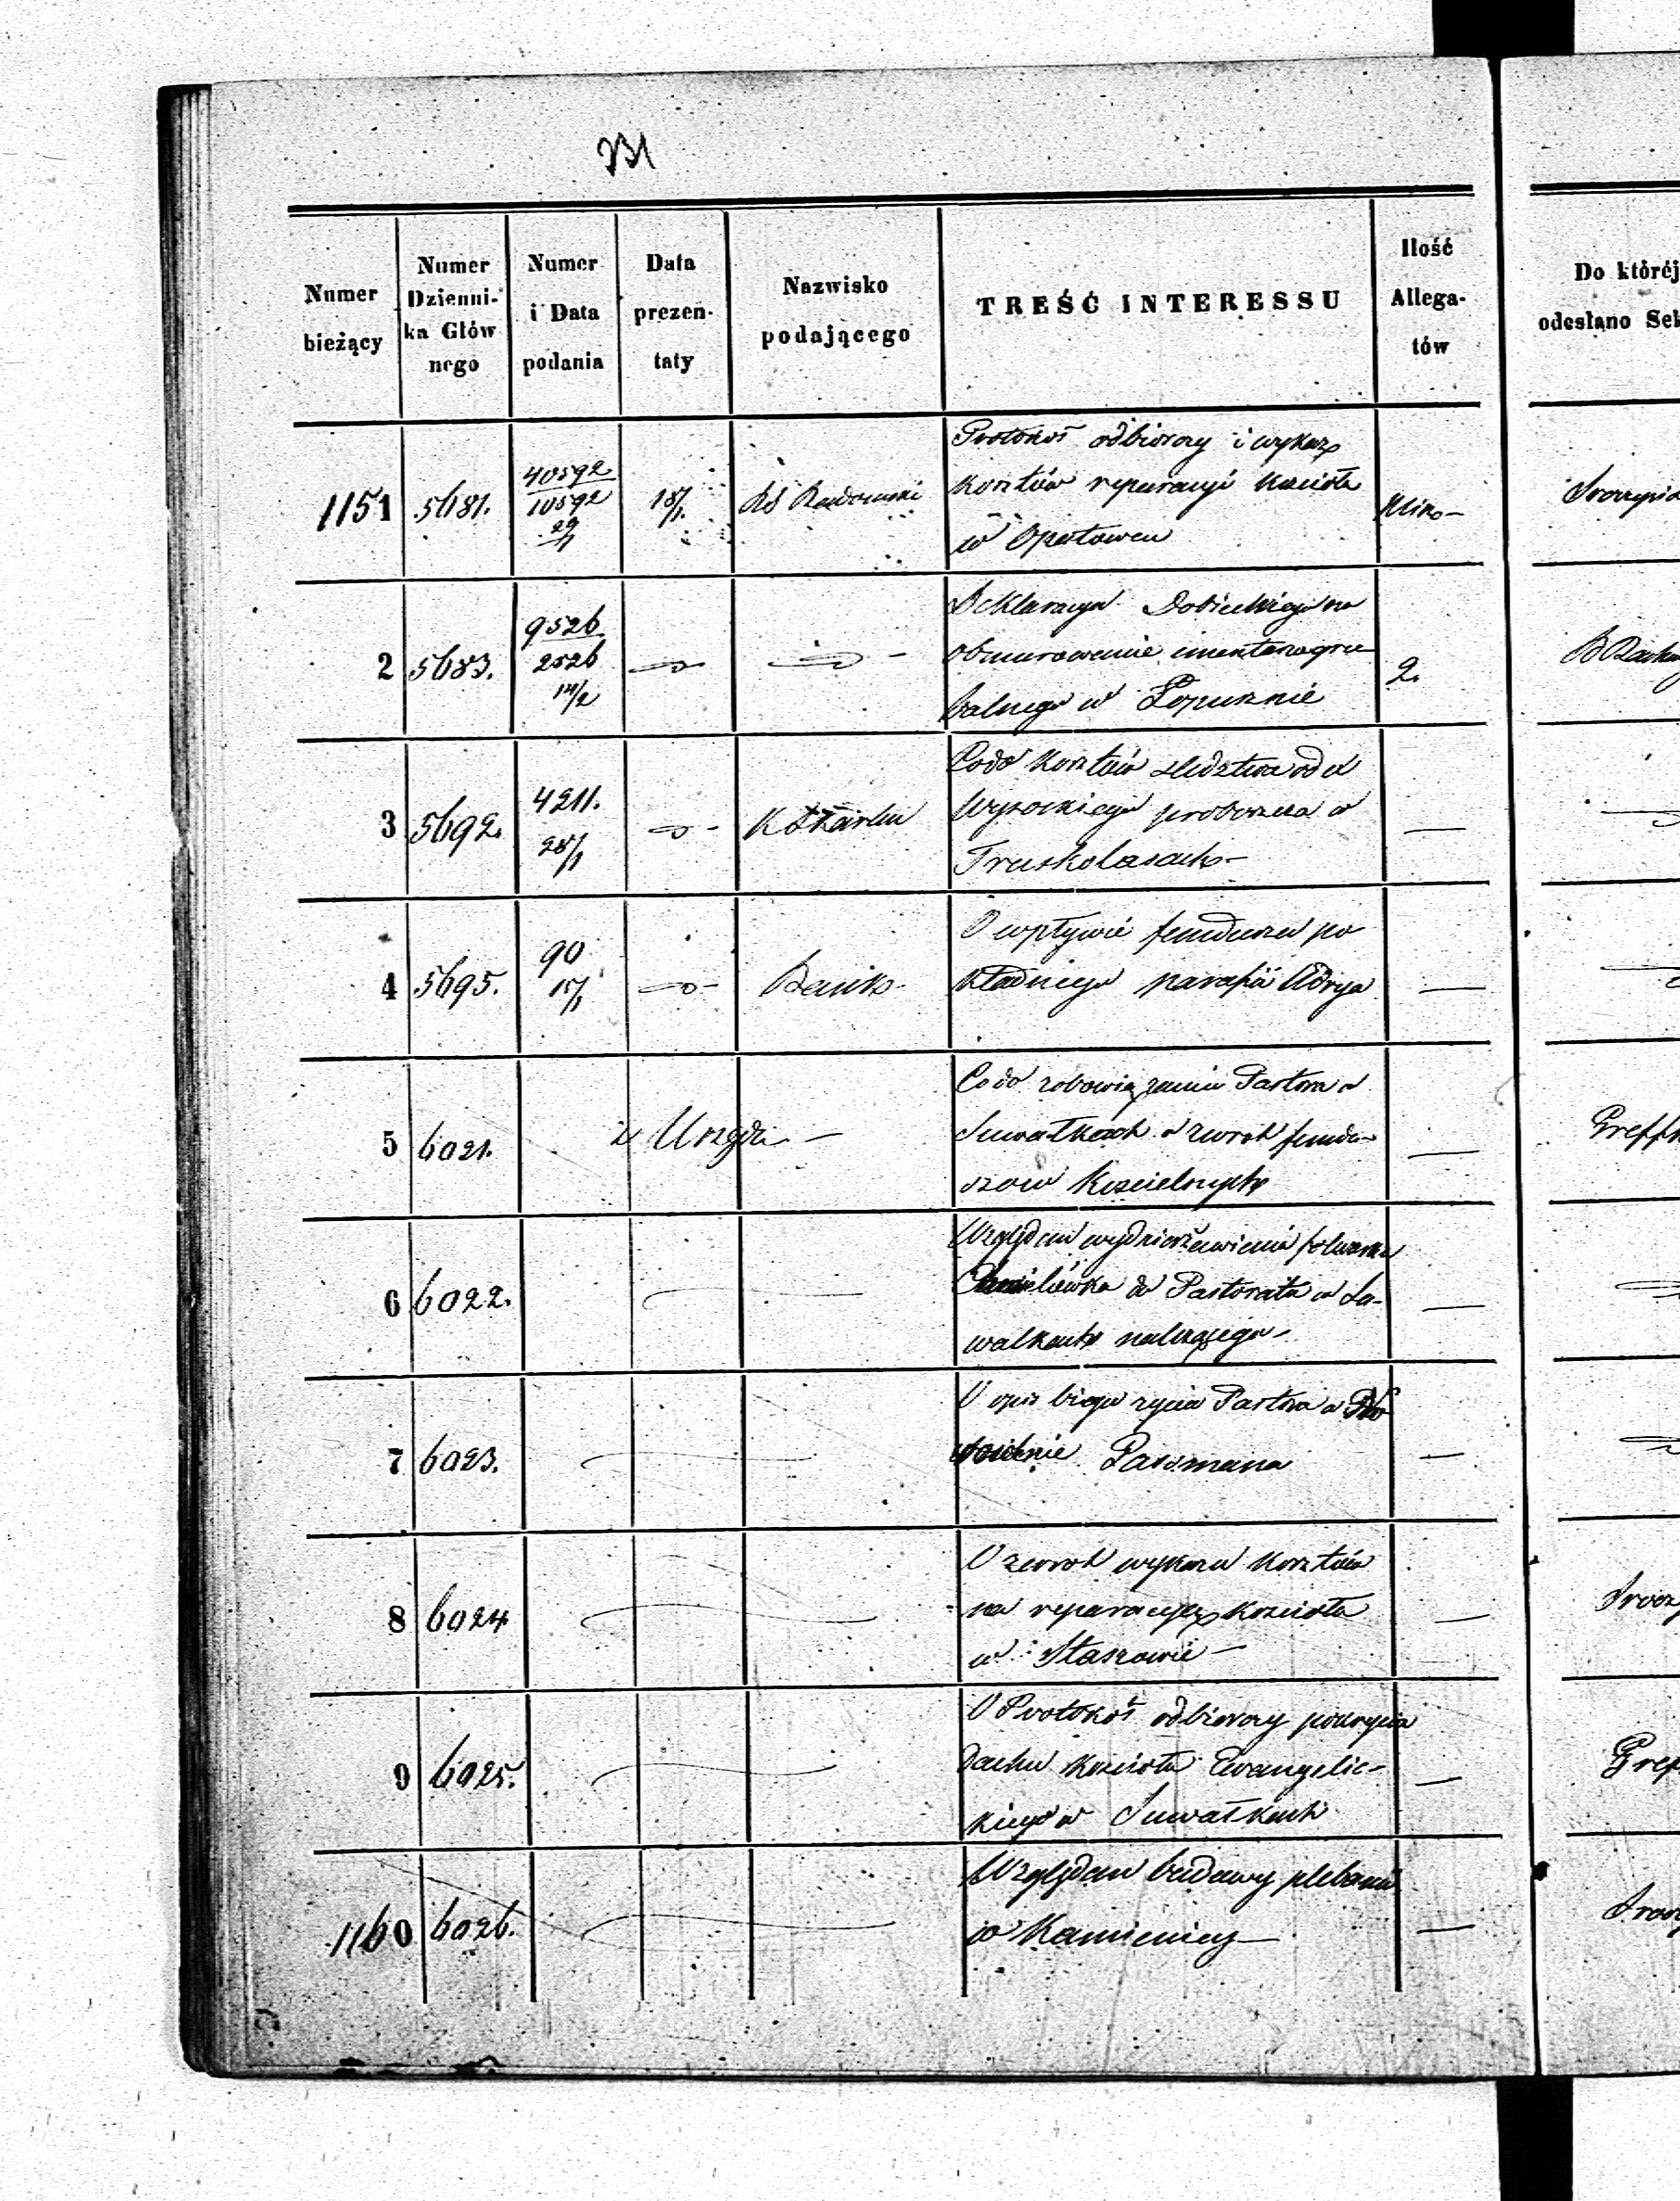 231
Numer bieżący
Numer Dzienni-ka Głównego
Numer i Data podania
Data prezen-taty
Nazwisko podającego
TREŚĆ INTERESSU
Ilość Allega-tów
Do któréj
odesłano Sek
1151 5681. 40592 10592 29/1 18/1. RG Radomski
Protokoł odbiorczy i wykaz
kosztów reparacyi kościoła
w Opatowcu
2 5683. 9526 2526 14/2
Deklaracya Dobieckiego na
obmurowanie cmentarza grze
balnego w Łopusznie
2.
3 5692. 4211. 28/1
Co do kosztów śledztwa od X
Wysockiego proboszcza w
Truskolasach
4 5695. 90 15/1 Bank
O wpływie funduszu po
kładnego parafii Odrzyw
5 6021. z Urzędu
Co do zobowiązania Pastora w
Suwałkach o zwrot fundu-
szów kościelnych
Greff
6 6022.
Względem wydzierżawienia folwarku
do Pastoratu w Su-
wałkach należącego
7 6023.
O opis biegu życia Pastora w
8 6024
O zwrot wykazu kosztów
na reparacyę kościoła
w Staszowie
9 6025.
O Protokoł odbiorczy pokrycia
dachu kościoła Ewangelic-
kiego w Suwałkach
Gref
1160 6026.
Względem budowy plebanii
w Kamienicy